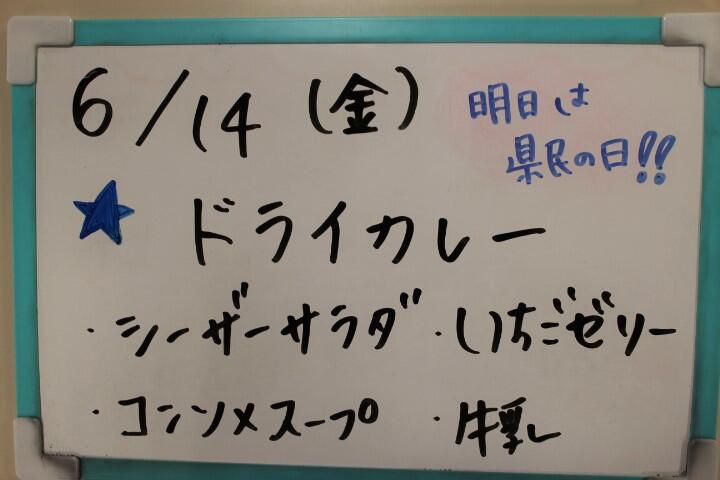 6/14 (金)
明日は
県民の日!!
★ ドライカレー
・シーザーサラダ ・いちごゼリー
・コンソメスープ ・牛乳